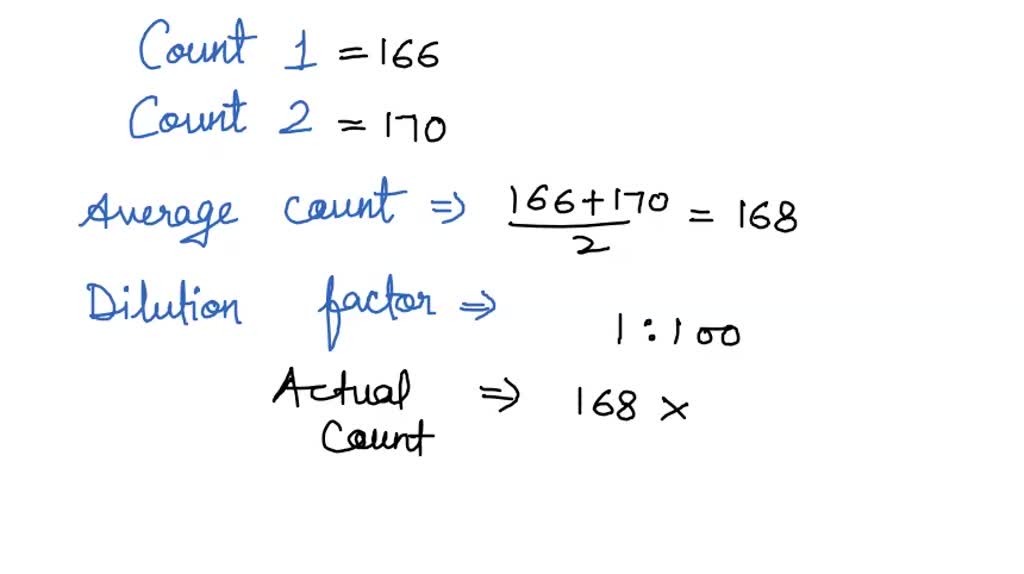 Count 1 = 166
Count 2 = 170
Average count ⇒ 166+170/2 = 168
Dilution factor ⇒ 1:100
Actual Count ⇒ 168 ×